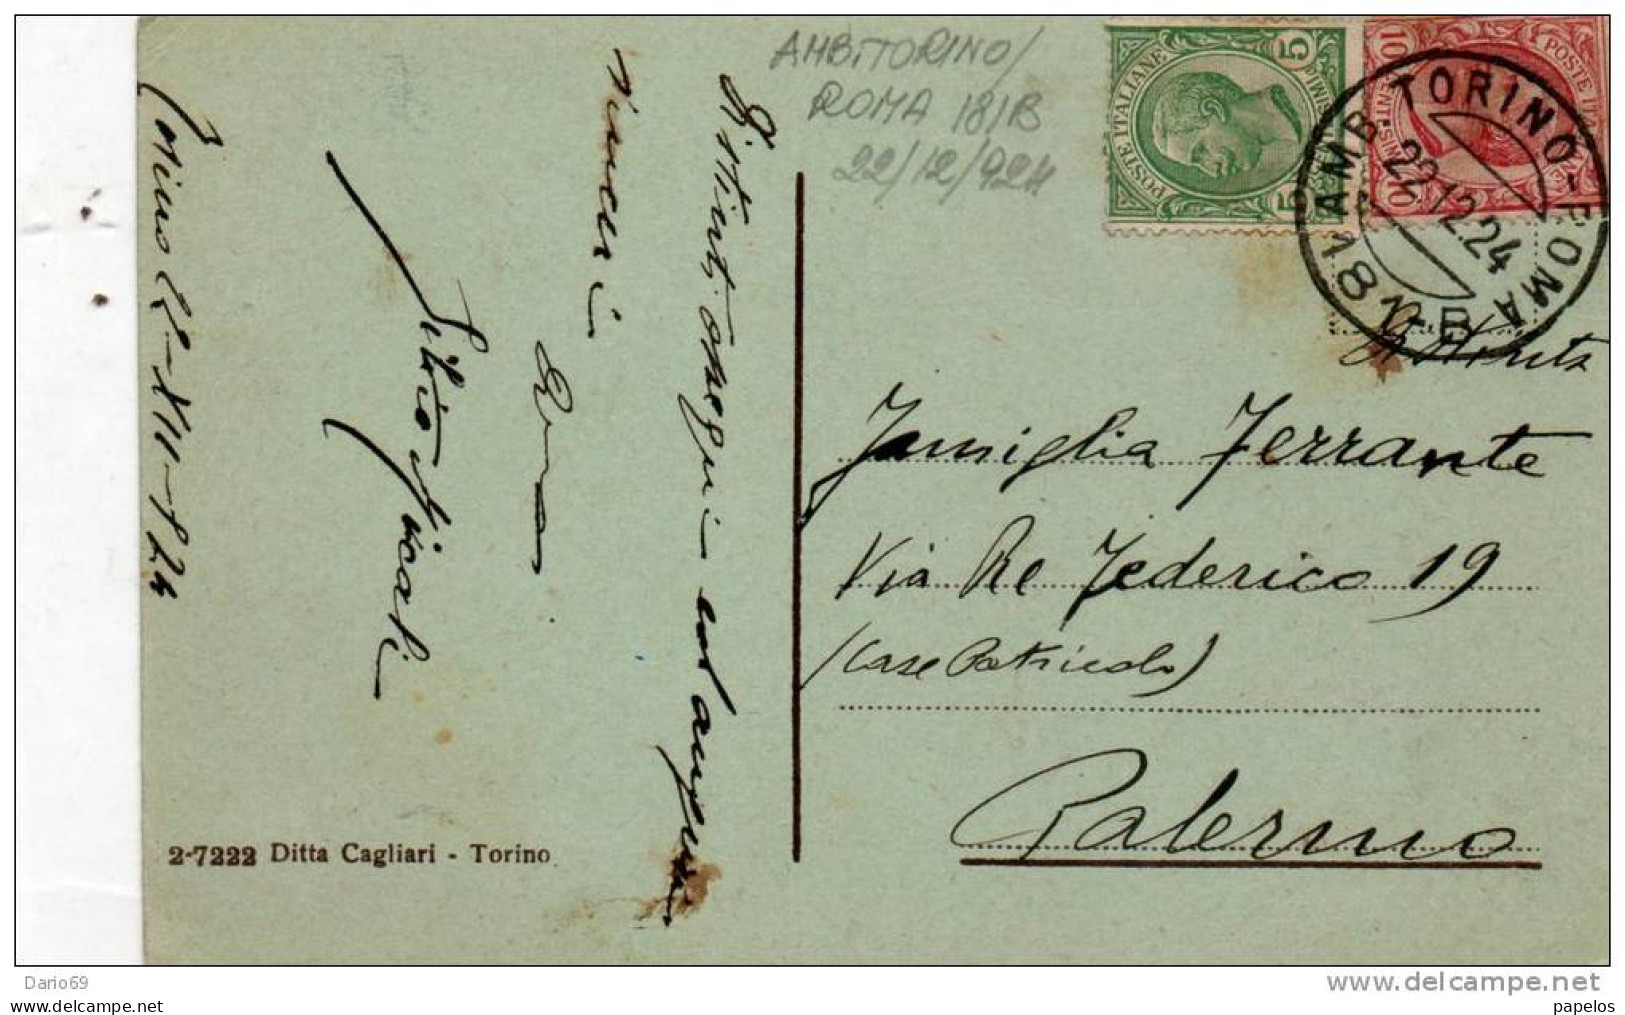 AMB. TORINO/
ROMA 181B
22/12/924
POSTE ITALIANE
5
5
POSTE ITA
10
10
AMB. TORINO-ROMA
181-B
22.12.24
Distinta
Famiglia Ferrante
Via Re Federico 19
(Case Patricolo)
Palermo
Distinti ossequi ed auguri
sinceri
Silvio
Torino 22-XII-924
2-7222 Ditta Cagliari - Torino
Dario69
www.delcampe.net
papelos